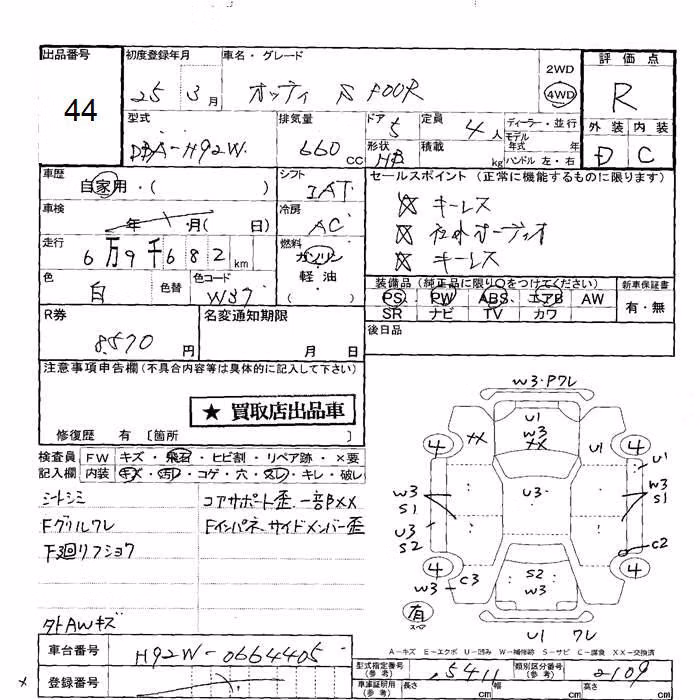 出品番号
44
初度登録年月
25 3月
車名・グレード
オッティ S FOUR
2WD
4WD
評価点
R
外装 内装
D C
型式
DBA-H92W
排気量
660 CC
ドア 5
形状 HB
定員 4人
積載 kg
ディーラー・並行
モデル
年式 年
ハンドル 左・右
車歴
自家用・( )
シフト
IAT
車検
年 月( 日)
冷房
AC
走行
6万9千682km
燃料
ガソリン
軽油
( )
色
白
色替
色コード
W37
セールスポイント(正常に機能するものに限ります)
キーレス
社外オーディオ
キーレス
装備品(純正品に限り○をつけてください)
PS PW ABS エアB AW
SR ナビ TV カワ
新車保証書
有・無
後日品
R券
8,570円
名変通知期限
月 日
注意事項申告欄(不具合内容等は具体的に記入して下さい)
★買取店出品車
修復歴 有 〔箇所 〕
検査員 FW キズ・飛石・ヒビ割・リペア跡・×要
記入欄 内装 キズ・汚れ・コゲ・穴・スレ・キレ・破レ
シートシミ
Fグリルワレ
下廻リフショウ
外AWキズ
コアサポート歪、一部BXX
Fインパネ、サイドメンバー歪
W3・Pワレ
U1
W3
XX
XX
U1
4
4
U1
W3
S1
U3
W3
S1
U3
S2
C2
4
4
W3
C3
S2
W3
有
スペア
U1 ワレ
A-キズ E-エクボ U-凹み W-補修跡 S-サビ C-腐食 XX-交換済
車台番号
H92W-0664405
登録番号
型式指定番号
(参考)
15411
類別区分番号
(参考)
2109
車庫証明用
(参考)
長さ cm
幅 cm
高さ cm